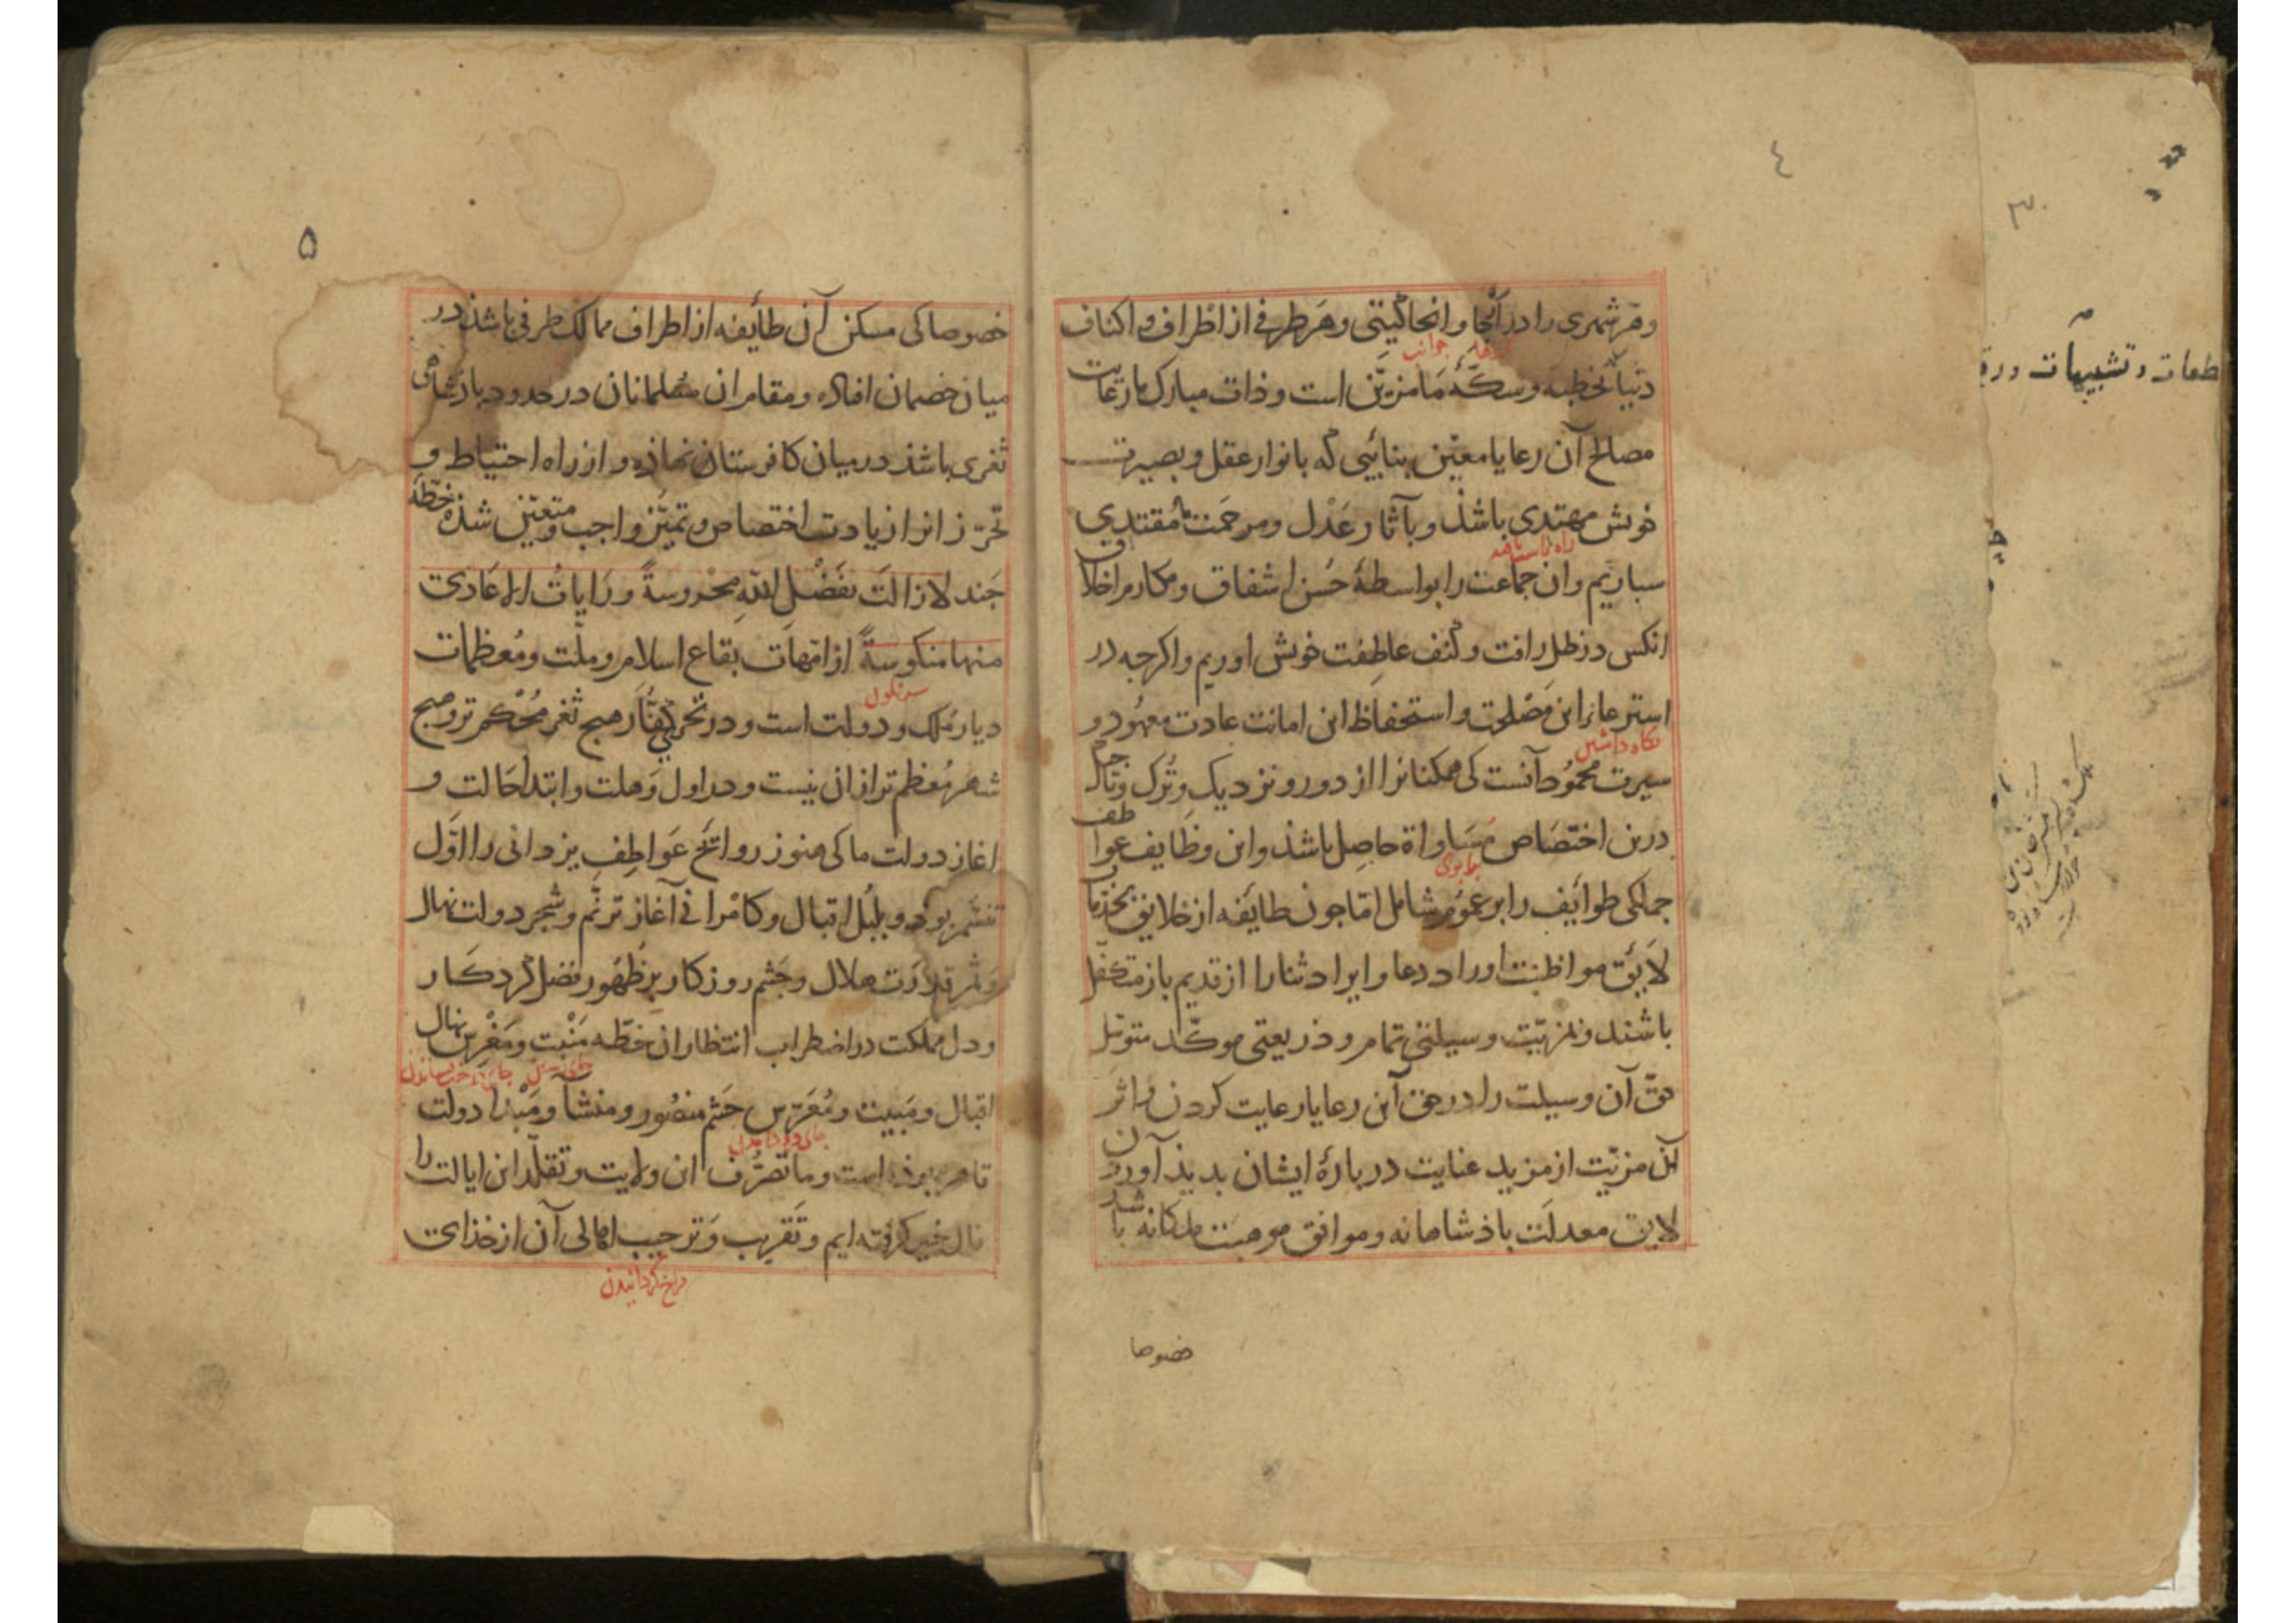 ٤
وهر شهری را در آنجا و انجا گیتی و هر طرفی از اطراف و اکناف
جوانب
دنیا بخطبه و سکّهٔ ما مزیّن است و ذات مبارک ما رعایت
مصالح آن رعایا معیّن بنائبی که بانوار عقل و بصیرت
خویش مهتدی باشذ و بآثار عَدْل و مرحمت ما مقتدی
راه راست یافته
سباریم و ان جماعت را بواسطهٔ حُسن اشفاق و مکارم اخلاق
انکس در ظل رافت و کنف عاطفت خویش اوریم و اکرجه در
استرعاء این مَصْلحت و استحفاظ این امانت عادت معهُود و
نکاه داشتن
سیرت محمُود آنست کی ممکنانرا از دور و نزدیک و تُرک و تاجیک
درین اختصَاص مسَاواة حاصِل باشذ و این وظایف عواطف
برابری
جملکی طوائف را بر عمُوم شامل امّا جون طائفه از خلایق بخذمات
لایٔق مواظبت اوراد دعا و ایراد ثنا را از قدیم باز متکفّل
باشند و بمزیّت وسیلتی تمام و ذریعتی موکّد متوسّل
حقّ آن وسیلت را در حق آن رعایا رعایت کردن و اثر
آن مزیّت از مزید عنایت دربارهٔ ایشان بدید آوردن
لایق معدلَت باذشاهانه و موافق موهبَت ملکانه باشد
خصوصا
۵
خصوصا کی مسکن آن طائفه از اطراف ممالک طرفی باشذ در
میان خصمان افتاده و مقام ان مسُلمانان در حدود باذشاهی
ثغری باشذ در میان کافرستان نهاذه و از راه احتیاط و
تحرّز انرا زیادت اختصاص و تمیّز واجب و متعیّن شذه خطّهٔ
جَند لازالَت بفَضْلِ اللّهِ محْروسةً و رَایاتُ الاعَادی
منها منکوسةً از امّهات بقاع اسلام و ملّت و مُعظمات
سرنکون
دیار مُلک و دولت است و در نحر کفّار هیج ثغر مُحْکم تر و هیج
شهر مُعظم تر ازان نیست و در اول وَهلت و ابتدا حَالت و
اغاز دولت ما کی هنوز روائح عَواطِفِ یزدانی را اوّل
تنسّم بوذ و بلبُل اقبال و کامرانی را آغاز ترنّم و شجر دولت نهال
و قمر قدرت هلال و جَشم روزکار بر ظهور فضل کردکَار
و دل مملکت در اضطراب انتظار ان خطّه مَنْبت و مَغْرس نهال
جای رستن جای درخت نشاندن
اقبال و مَبیت و مُعَرّس حَشم منصُور و منشأ و مَبْدأ دولت
جای فرود آمدن
قاهره بوذه است و ما تصرُّف ان ولایت و تقلّد این ایالت را
فال خیر کرفته ایم و تَقریب و تَرحیب اهالی آن از خذای
فراخ گردانیدن
۳
طعات و تشبیهات و رق